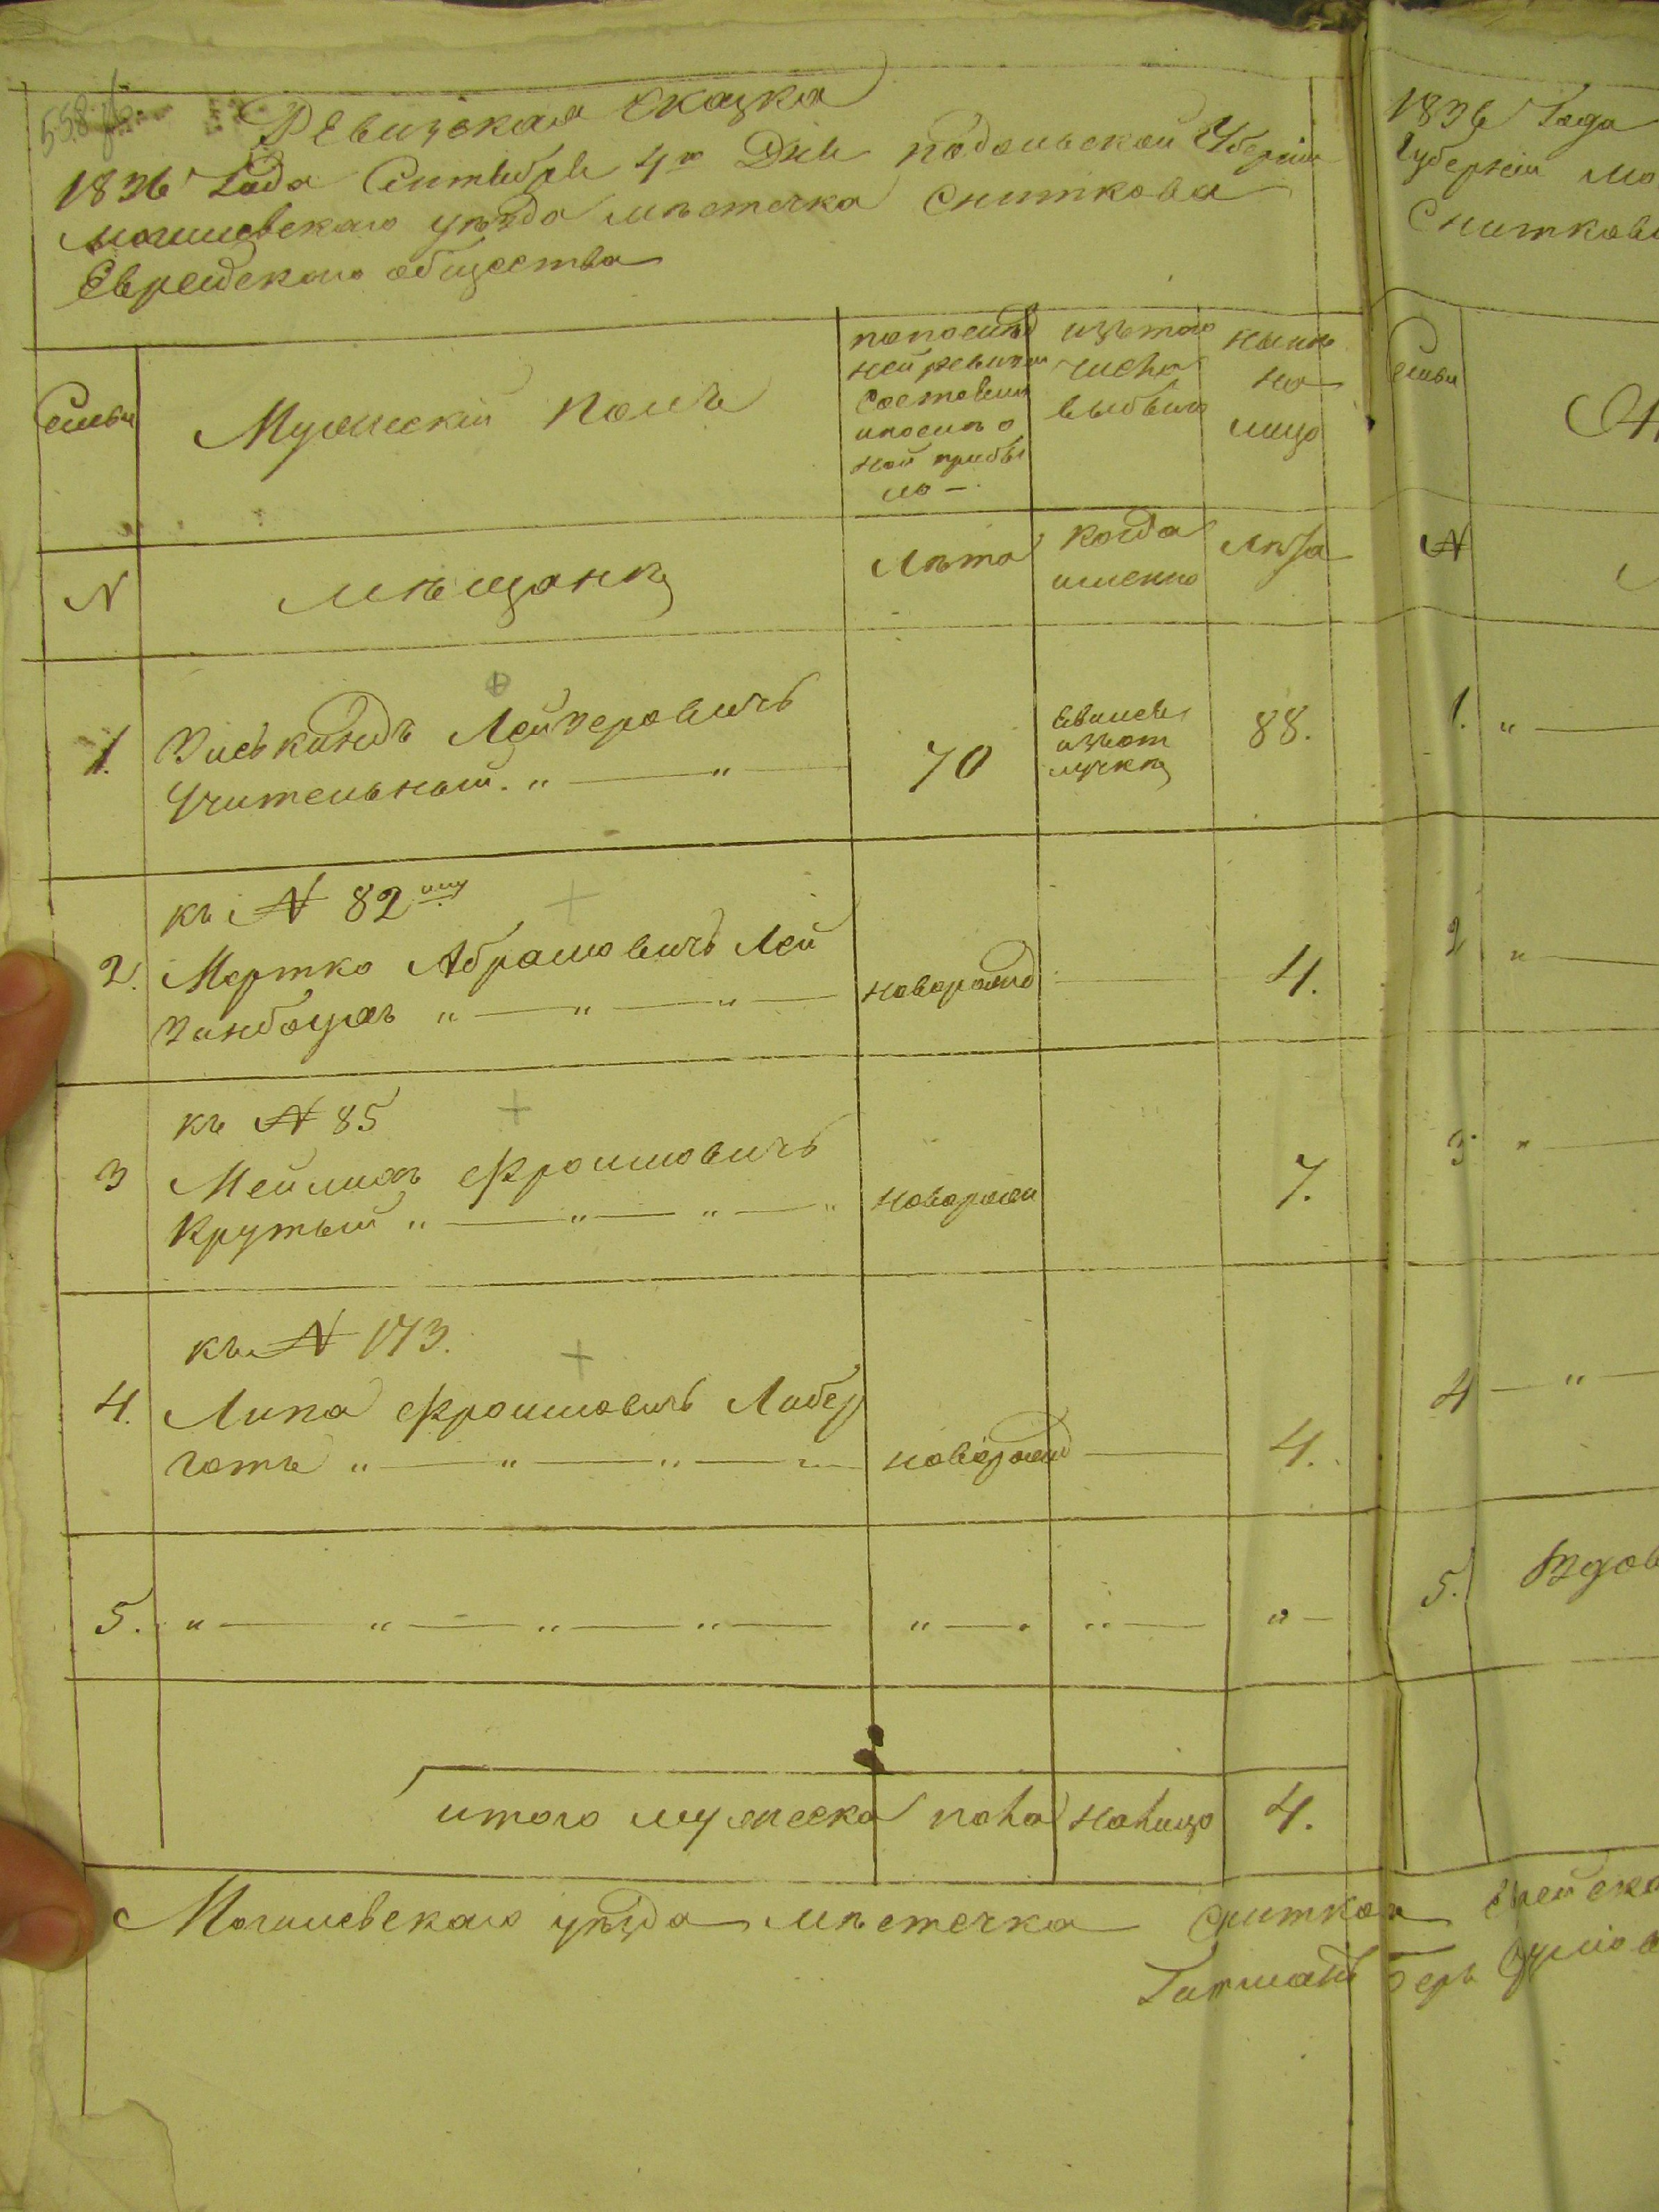 558
Ревизская Сказка
1836 Года Сентября 4го Дня подольской Губерніи
могилевского уѣзда мѣстечка Сниткова
Еврейского общества
Семьи
Мужескій полъ
по послѣд
ней ревизіи
Состояли
и послѣ о
ной прибы
ло —
изъ того
числа
выбыло
нынѣ
на
лицо
N
мѣщанѣ
Лѣта
когда
именно
Лѣта
1.
Зиськиндъ Лейзеровичъ
Учительный. „ — „ —
70
явился
изъ от
лучки
88.
къ N 82
2.
Мортко Абрамовичъ Лей
Зинбоцхъ „ — „ — „ —
новорожд
—
4.
къ N 85
3
Мейлихъ Фроимовичъ
Крутый „ — „ — „ — „
новорож
7.
къ N 173.
4.
Липа Фроимовичъ Либер
готъ „ — „ — „ — „ —
новорожд
—
4.
5. „ — „ — „ — „ — „ — „ — „ —
итого мужеска пола налицо 4.
Могилевского уѣзда мѣстечка Снитков еврейско
Гитманъ Беръ
1836 Года
Губерніи мо
Снитков
Семьи
N
1. „ —
2 „ —
3 „ —
4 — „ —
5. Вдов